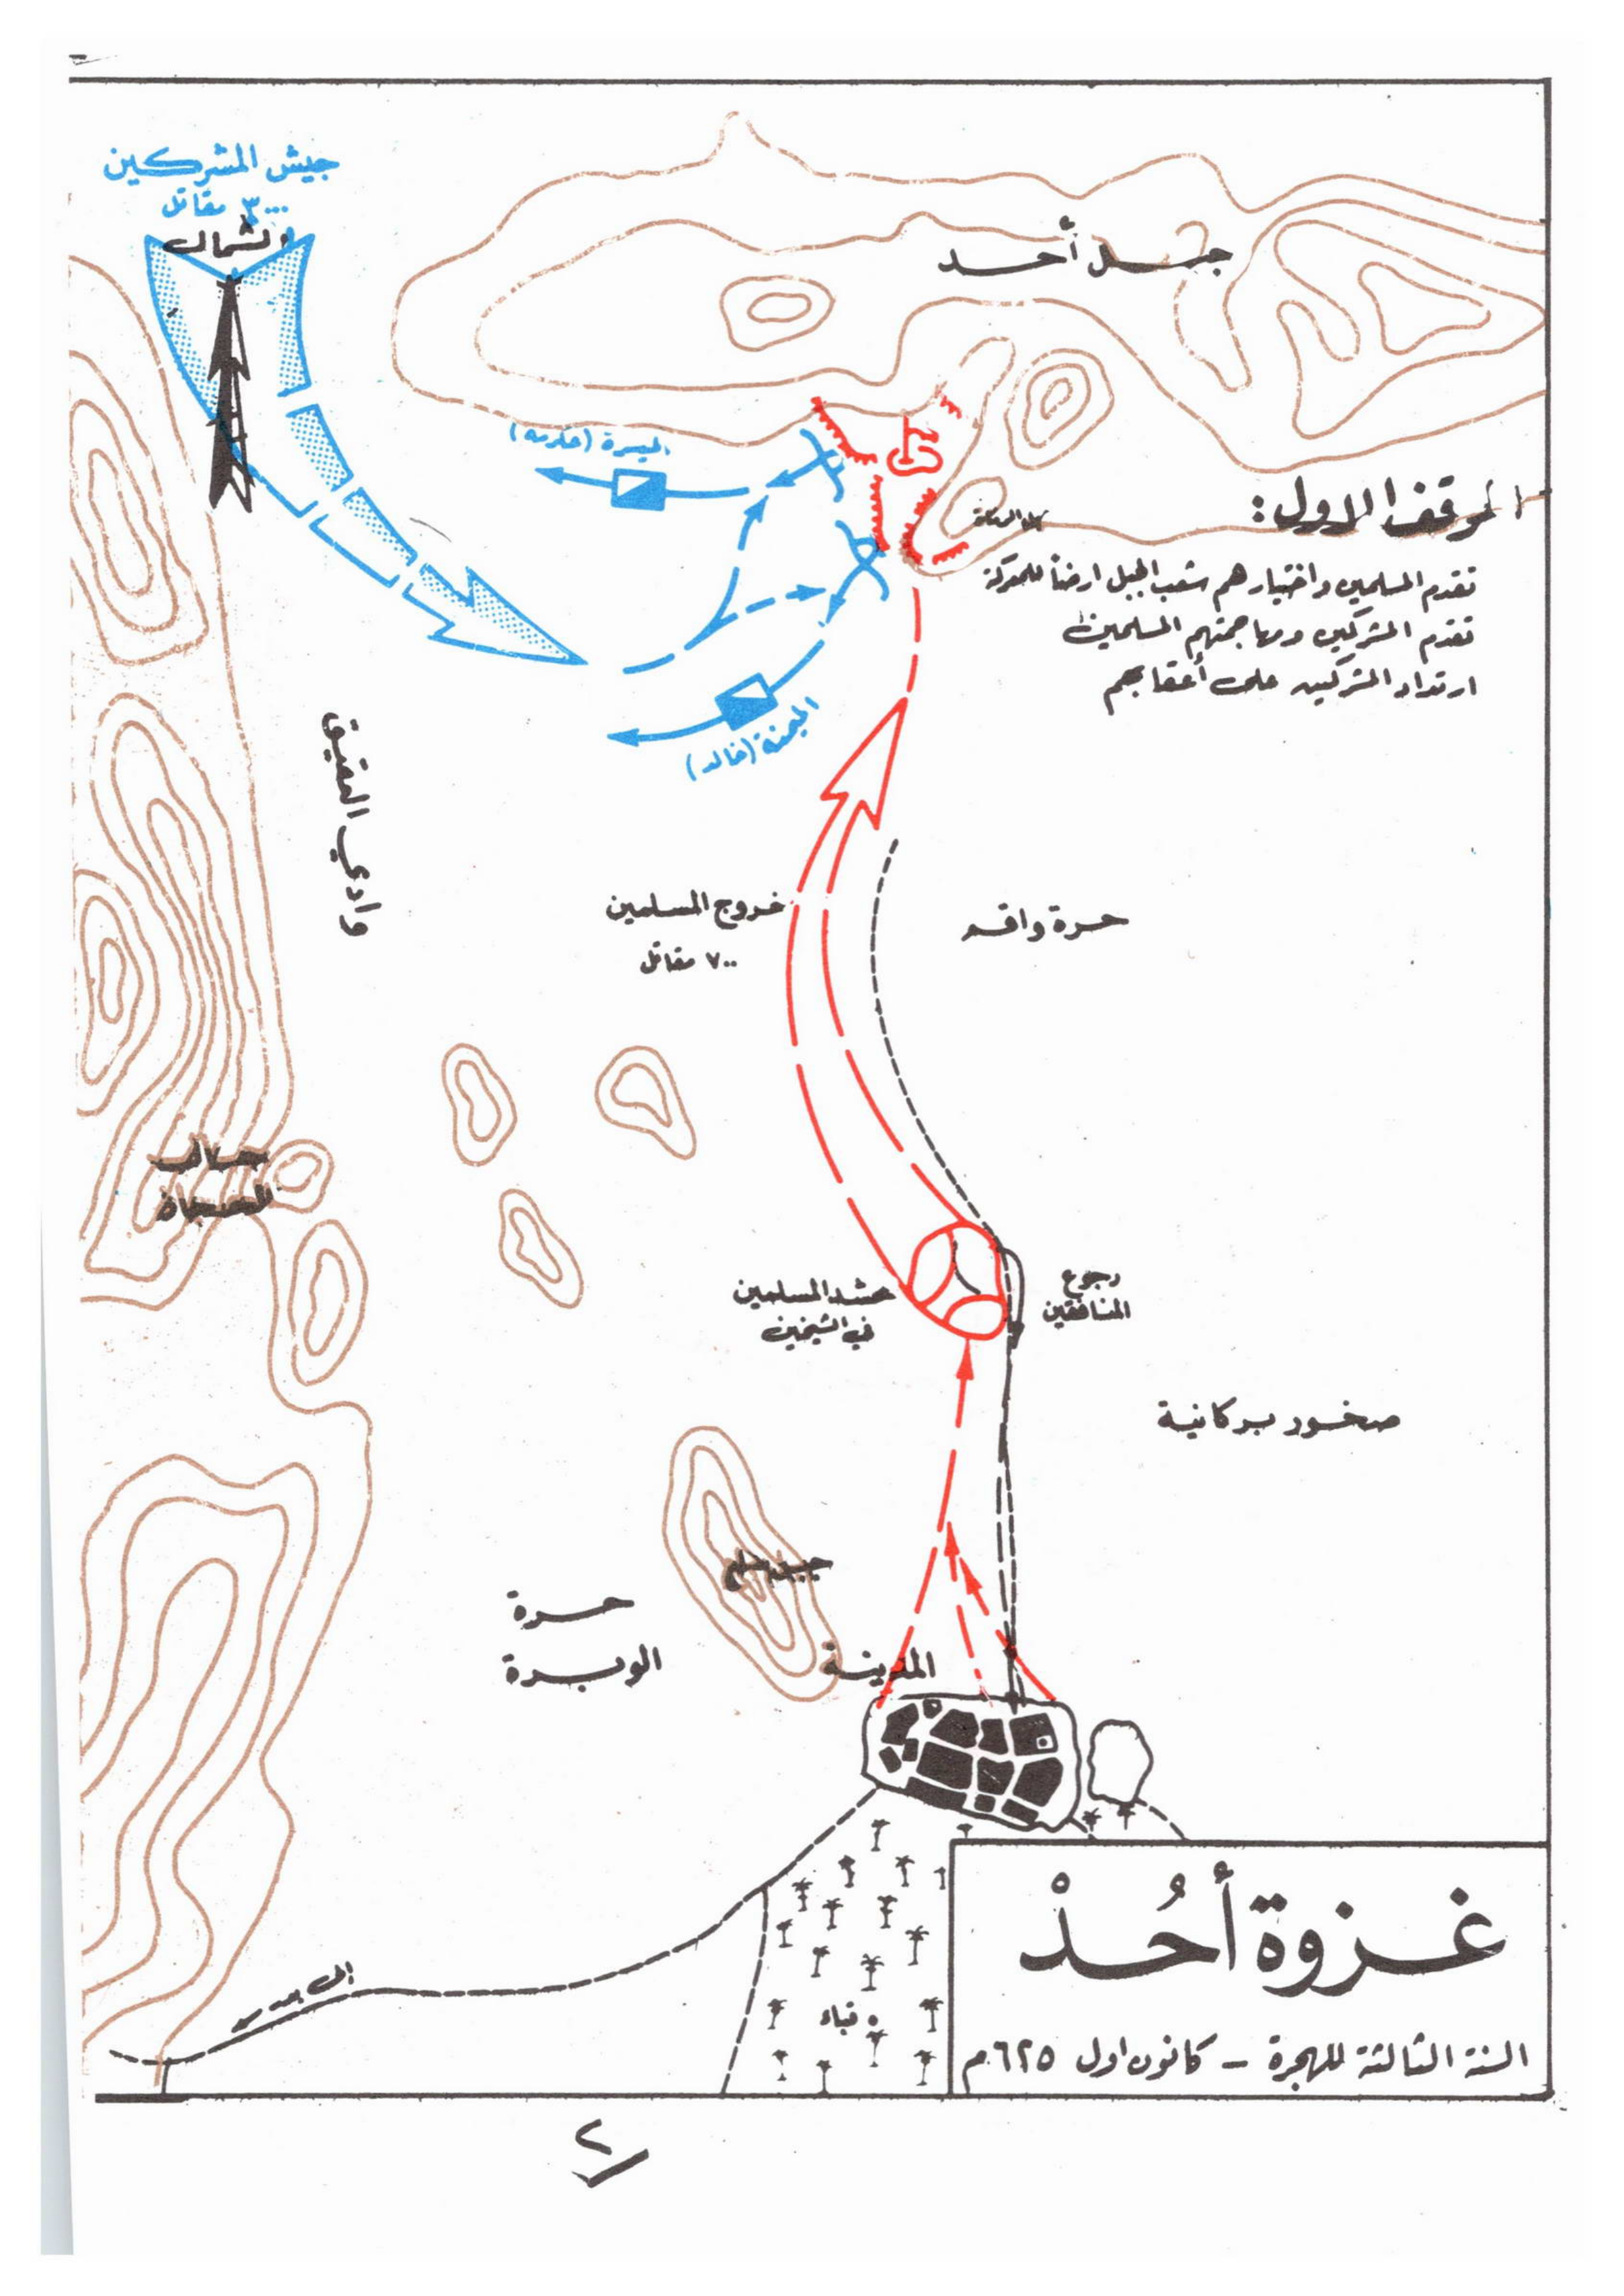 جيش المشركين
٣٠٠٠ مقاتل
الشمال
جبل أحد
الميسرة (عكرمة)
الميمنة (خالد)
الموقف الاول:
تقدم المسلمين واختيارهم شعب الجبل ارضاً للمعركة
تقدم المشركين ومهاجمتهم المسلمين
ارتداد المشركين على أعقابهم
وادي العقيق
خروج المسلمين
٧٠٠ مقاتل
حرة واقم
جبال
حشد المسلمين
في الشيخين
رجوع
المنافقين
صخور بركانية
جبل سلع
حرة
الوبرة
المدينة
قباء
غزوة أُحُدْ
السنة الثالثة للهجرة - كانون اول ٦٢٥م
٢